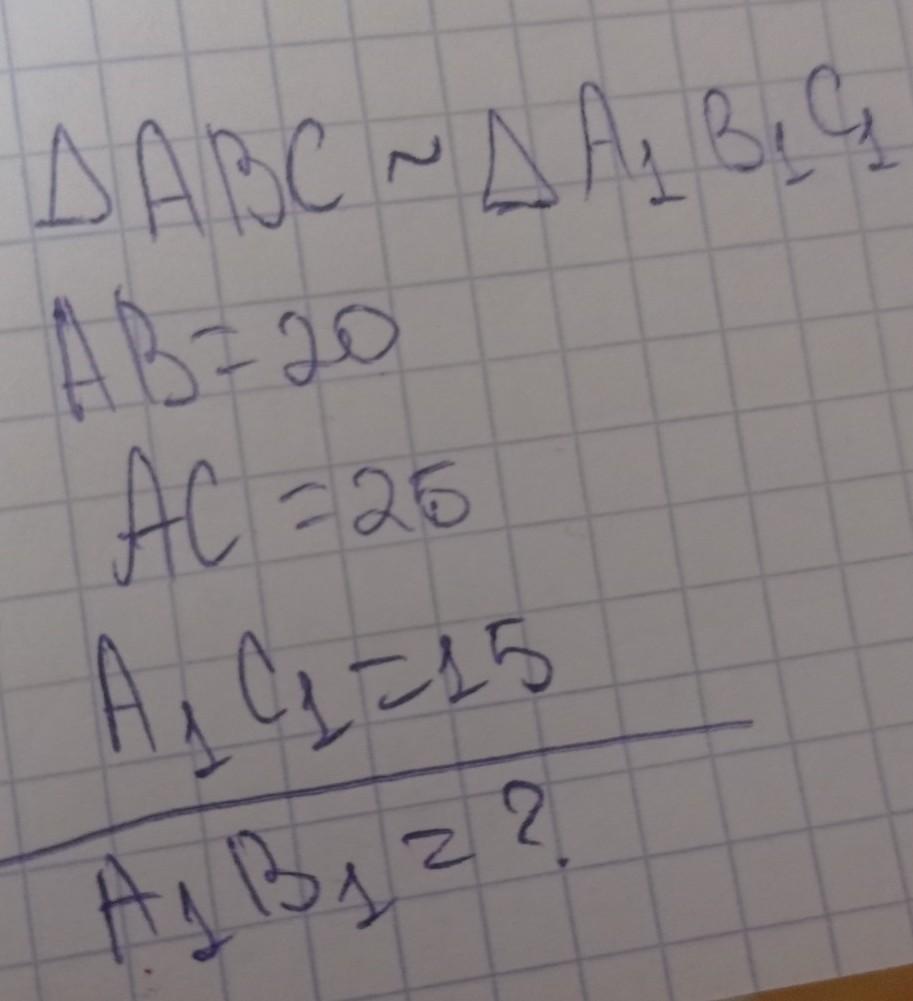 ΔABC ~ ΔA₁B₁C₁
AB=20
AC=25
A₁C₁=15
A₁B₁=?